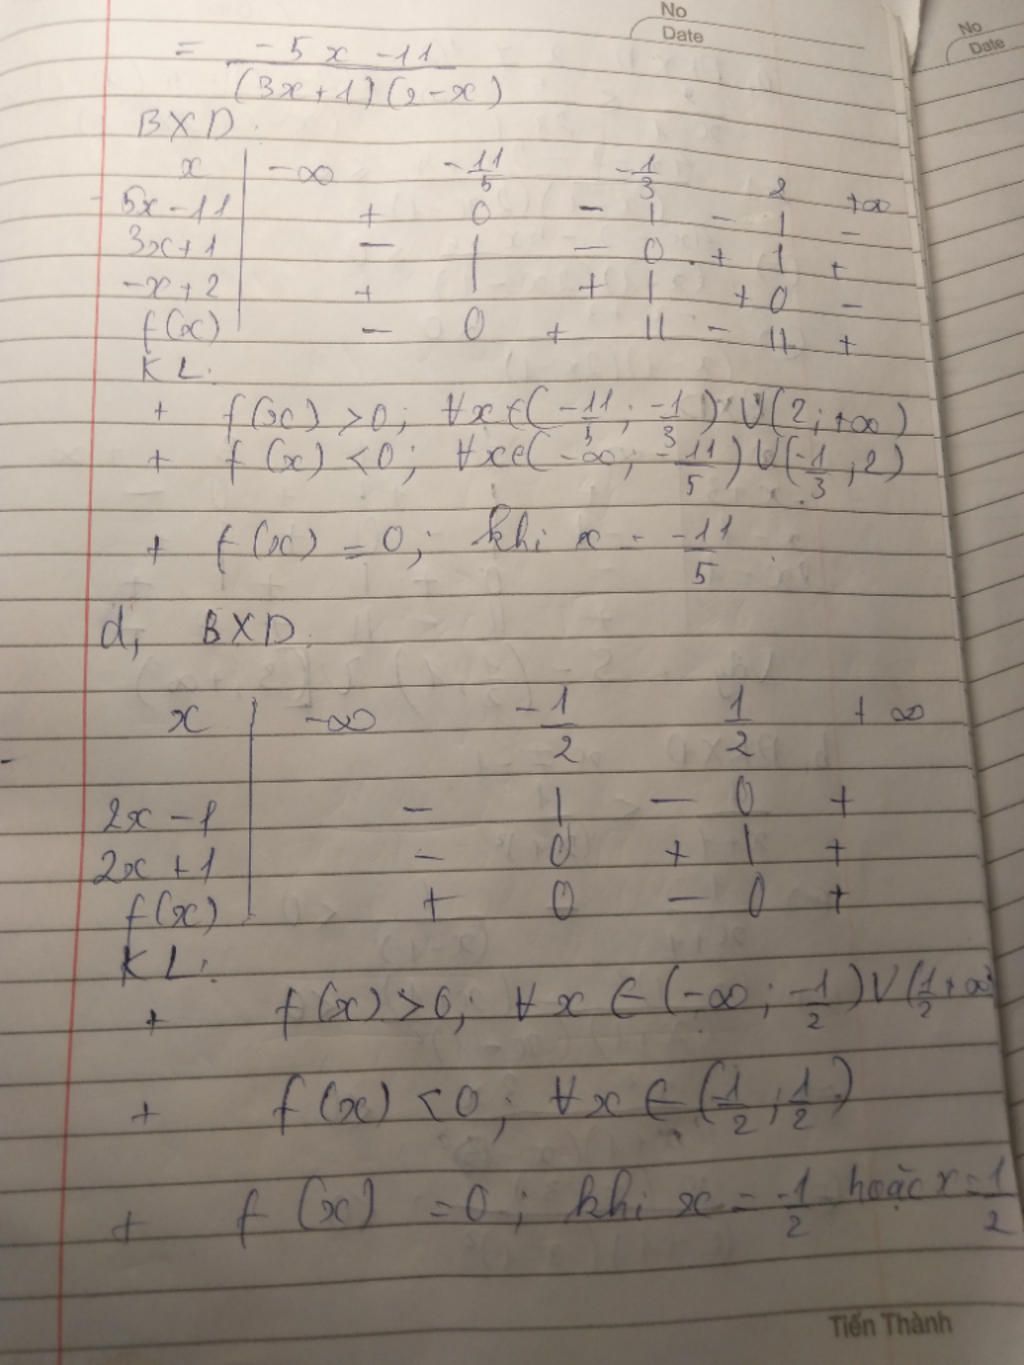 No
Date
No
Date
= -5x-11
(3x+1)(2-x)
BXD.
x -∞ -11/5 -1/3 2 +∞
-5x-11 + 0 - | - | -
3x+1 - | - 0 + | +
-x+2 + | + | + 0 -
f(x) - 0 + || - || +
KL:
+ f(x) >0; ∀x∈(-11/5; -1/3) ∪ (2; +∞)
+ f(x) <0; ∀x∈(-∞; -11/5) ∪ (-1/3, 2)
+ f(x) = 0; khi x = -11/5
d, BXD.
x -∞ -1/2 1/2 +∞
2x-1 - | - 0 +
2x+1 - 0 + | +
f(x) + 0 - 0 +
KL:
+ f(x) >0; ∀x ∈ (-∞; -1/2) ∪ (1/2 +∞)
+ f(x) <0; ∀x ∈ (-1/2; 1/2)
+ f(x) =0; khi x = -1/2 hoặc x = 1/2
Tiến Thành